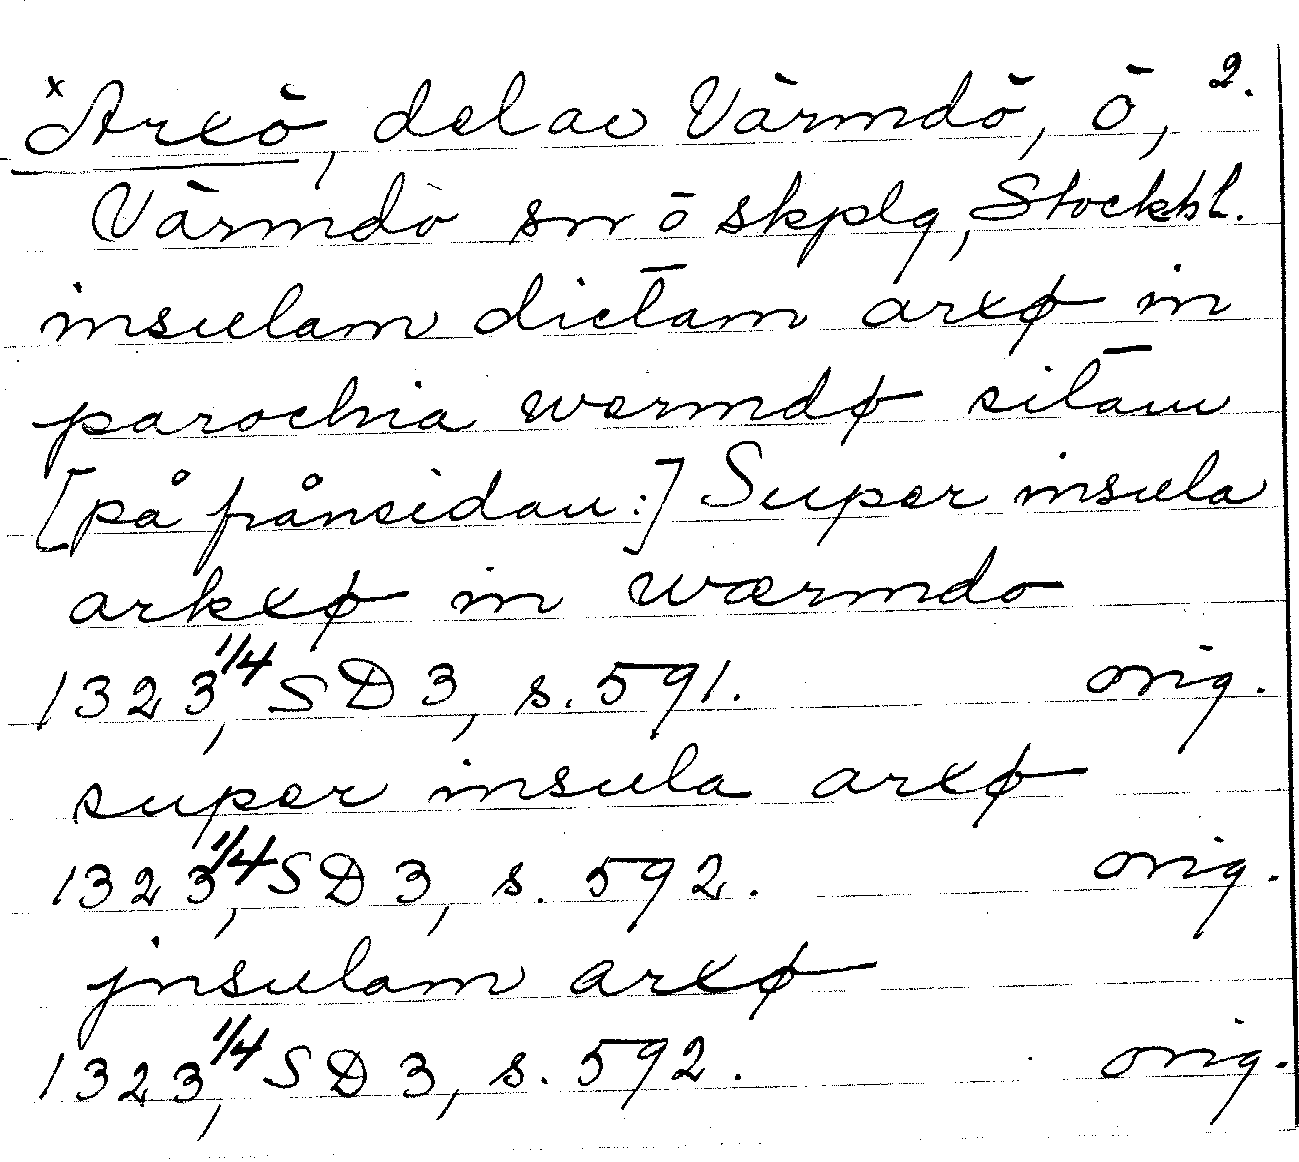 x Arxö, del av Värmdö, ö, 2.
Värmdö sn o skplg, Stockhl.
insulam dictam arxø in
parochia wermdø sitam
[på frånsidan:] Super insula
arkxø in wærmdo
1323 1/4, SD 3, s. 591. orig.
super insula arxø
1323 1/4, SD 3, s. 592. orig.
jnsulam arxø
1323 1/4, SD 3, s. 592. orig.